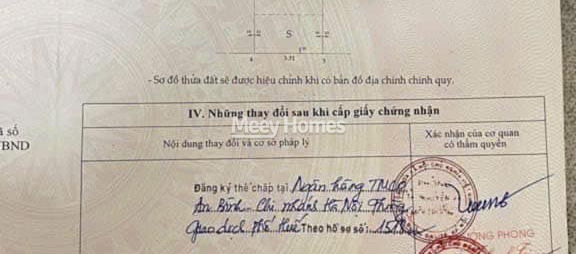 S
4 3.51 3
- Sơ đồ thửa đất sẽ được hiệu chỉnh khi có bản đồ địa chính chính quy.
IV. Những thay đổi sau khi cấp giấy chứng nhận
ã số
BND
Nội dung thay đổi và cơ sở pháp lý
Xác nhận của cơ quan
có thẩm quyền
Meey Homes
Đăng ký thế chấp tại Ngân hàng TMCP
An Bình - Chi nhánh Hà Nội Phòng
giao dịch phố Huế Theo hồ sơ số: